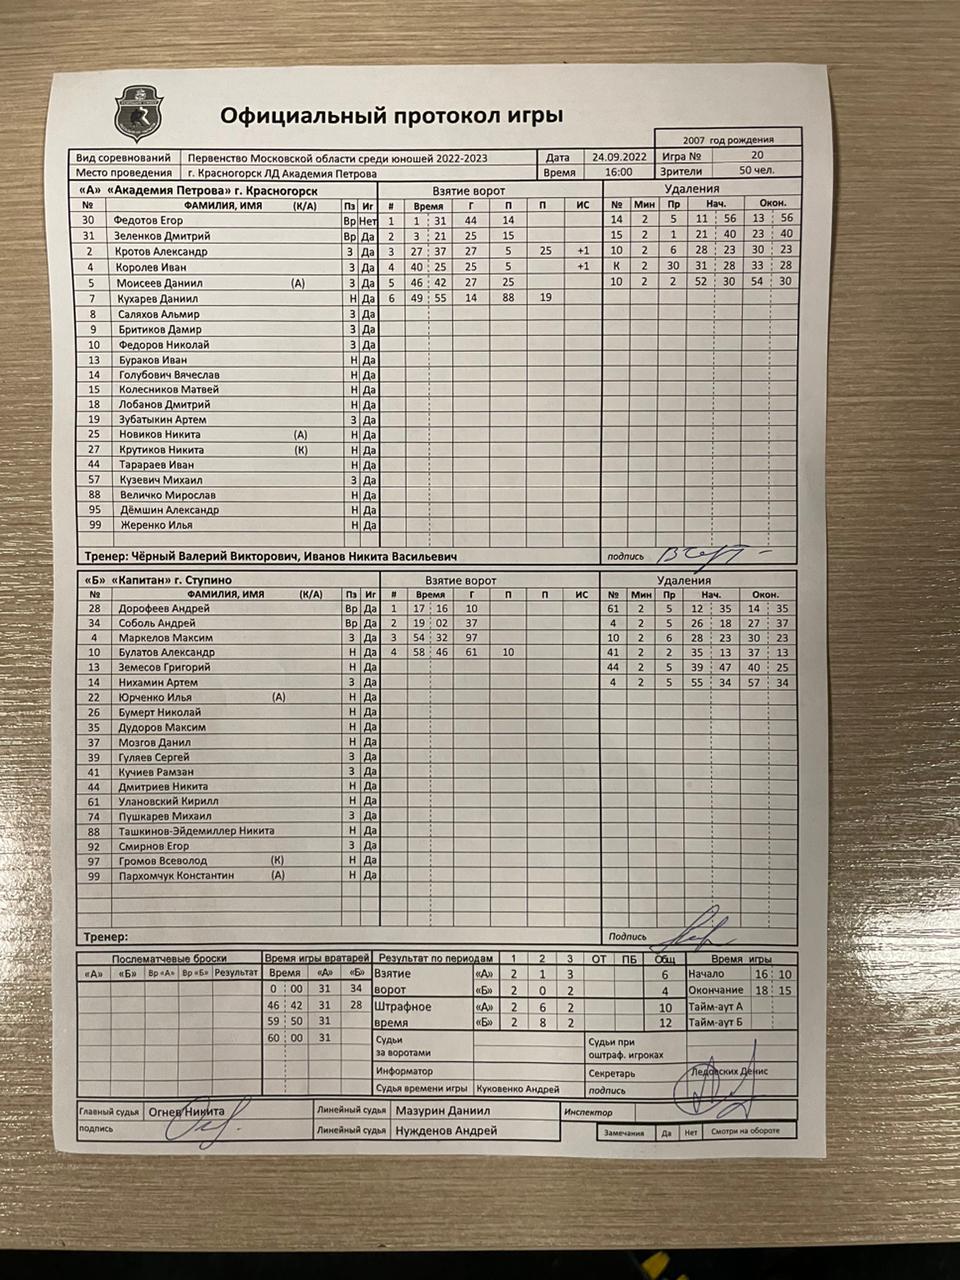 Официальный протокол игры
2007 год рождения
Вид соревнований Первенство Московской области среди юношей 2022-2023 Дата 24.09.2022 Игра № 20
Место проведения г. Красногорск ЛД Академия Петрова Время 16:00 Зрители 50 чел.
«А» «Академия Петрова» г. Красногорск Взятие ворот Удаления
№ ФАМИЛИЯ, ИМЯ (К/А) Пз Иг # Время Г П П ИС № Мин Пр Нач. Окон.
30 Федотов Егор Вр Нет 1 1 31 44 14 14 2 5 11 56 13 56
31 Зеленков Дмитрий Вр Да 2 3 21 25 15 15 2 1 21 40 23 40
2 Кротов Александр З Да 3 27 37 27 5 25 +1 10 2 6 28 23 30 23
4 Королев Иван З Да 4 40 25 25 5 +1 К 2 30 31 28 33 28
5 Моисеев Даниил (А) З Да 5 46 42 27 25 10 2 2 52 30 54 30
7 Кухарев Даниил Н Да 6 49 55 14 88 19
8 Саляхов Альмир З Да
9 Бритиков Дамир З Да
10 Федоров Николай З Да
13 Бураков Иван Н Да
14 Голубович Вячеслав Н Да
15 Колесников Матвей Н Да
18 Лобанов Дмитрий Н Да
19 Зубатыкин Артем З Да
25 Новиков Никита (А) Н Да
27 Крутиков Никита (К) Н Да
44 Тарараев Иван Н Да
57 Кузевич Михаил З Да
88 Величко Мирослав Н Да
95 Дёмшин Александр Н Да
99 Жеренко Илья Н Да
Тренер: Чёрный Валерий Викторович, Иванов Никита Васильевич подпись
«Б» «Капитан» г. Ступино Взятие ворот Удаления
№ ФАМИЛИЯ, ИМЯ (К/А) Пз Иг # Время Г П П ИС № Мин Пр Нач. Окон.
28 Дорофеев Андрей Вр Да 1 17 16 10 61 2 5 12 35 14 35
34 Соболь Андрей Вр Да 2 19 02 37 4 2 5 26 18 27 37
4 Маркелов Максим З Да 3 54 32 97 10 2 6 28 23 30 23
10 Булатов Александр Н Да 4 58 46 61 10 41 2 2 35 13 37 13
13 Земесов Григорий Н Да 44 2 5 39 47 40 25
14 Нихамин Артем З Да 4 2 5 55 34 57 34
22 Юрченко Илья (А) Н Да
26 Бумерт Николай Н Да
35 Дудоров Максим Н Да
37 Мозгов Данил Н Да
39 Гуляев Сергей З Да
41 Кучиев Рамзан З Да
44 Дмитриев Никита Н Да
61 Улановский Кирилл Н Да
74 Пушкарев Михаил З Да
88 Ташкинов-Эйдемиллер Никита Н Да
92 Смирнов Егор З Да
97 Громов Всеволод (К) Н Да
99 Пархомчук Константин (А) Н Да
Тренер: Подпись
Послематчевые броски Время игры вратарей Результат по периодам 1 2 3 ОТ ПБ Общ Время игры
«А» «Б» Вр «А» Вр «Б» Результат Время «А» «Б» Взятие «А» 2 1 3 6 Начало 16 10
0 00 31 34 ворот «Б» 2 0 2 4 Окончание 18 15
46 42 31 28 Штрафное «А» 2 6 2 10 Тайм-аут А
59 50 31 время «Б» 2 8 2 12 Тайм-аут Б
60 00 31 Судьи за воротами Судьи при оштраф. игроках
Информатор Секретарь Ледовских Денис
Судья времени игры Куковенко Андрей подпись
Главный судья Огнев Никита Линейный судья Мазурин Даниил Инспектор
подпись Линейный судья Нужденов Андрей Замечания Да Нет Смотри на обороте